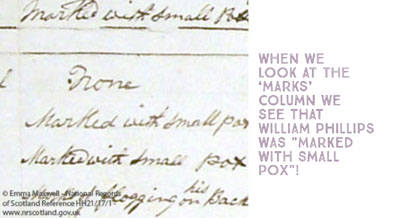 Marked with Small Pox
None
Marked with Small pox
Marked with Small Pox
of flogging on his Back
© Emma Maxwell - National Records
of Scotland Reference HH21/17/1
www.nrscotland.gov.uk
WHEN WE
LOOK AT THE
‘MARKS’
COLUMN WE
SEE THAT
WILLIAM PHILLIPS
WAS "MARKED
WITH SMALL
POX"!